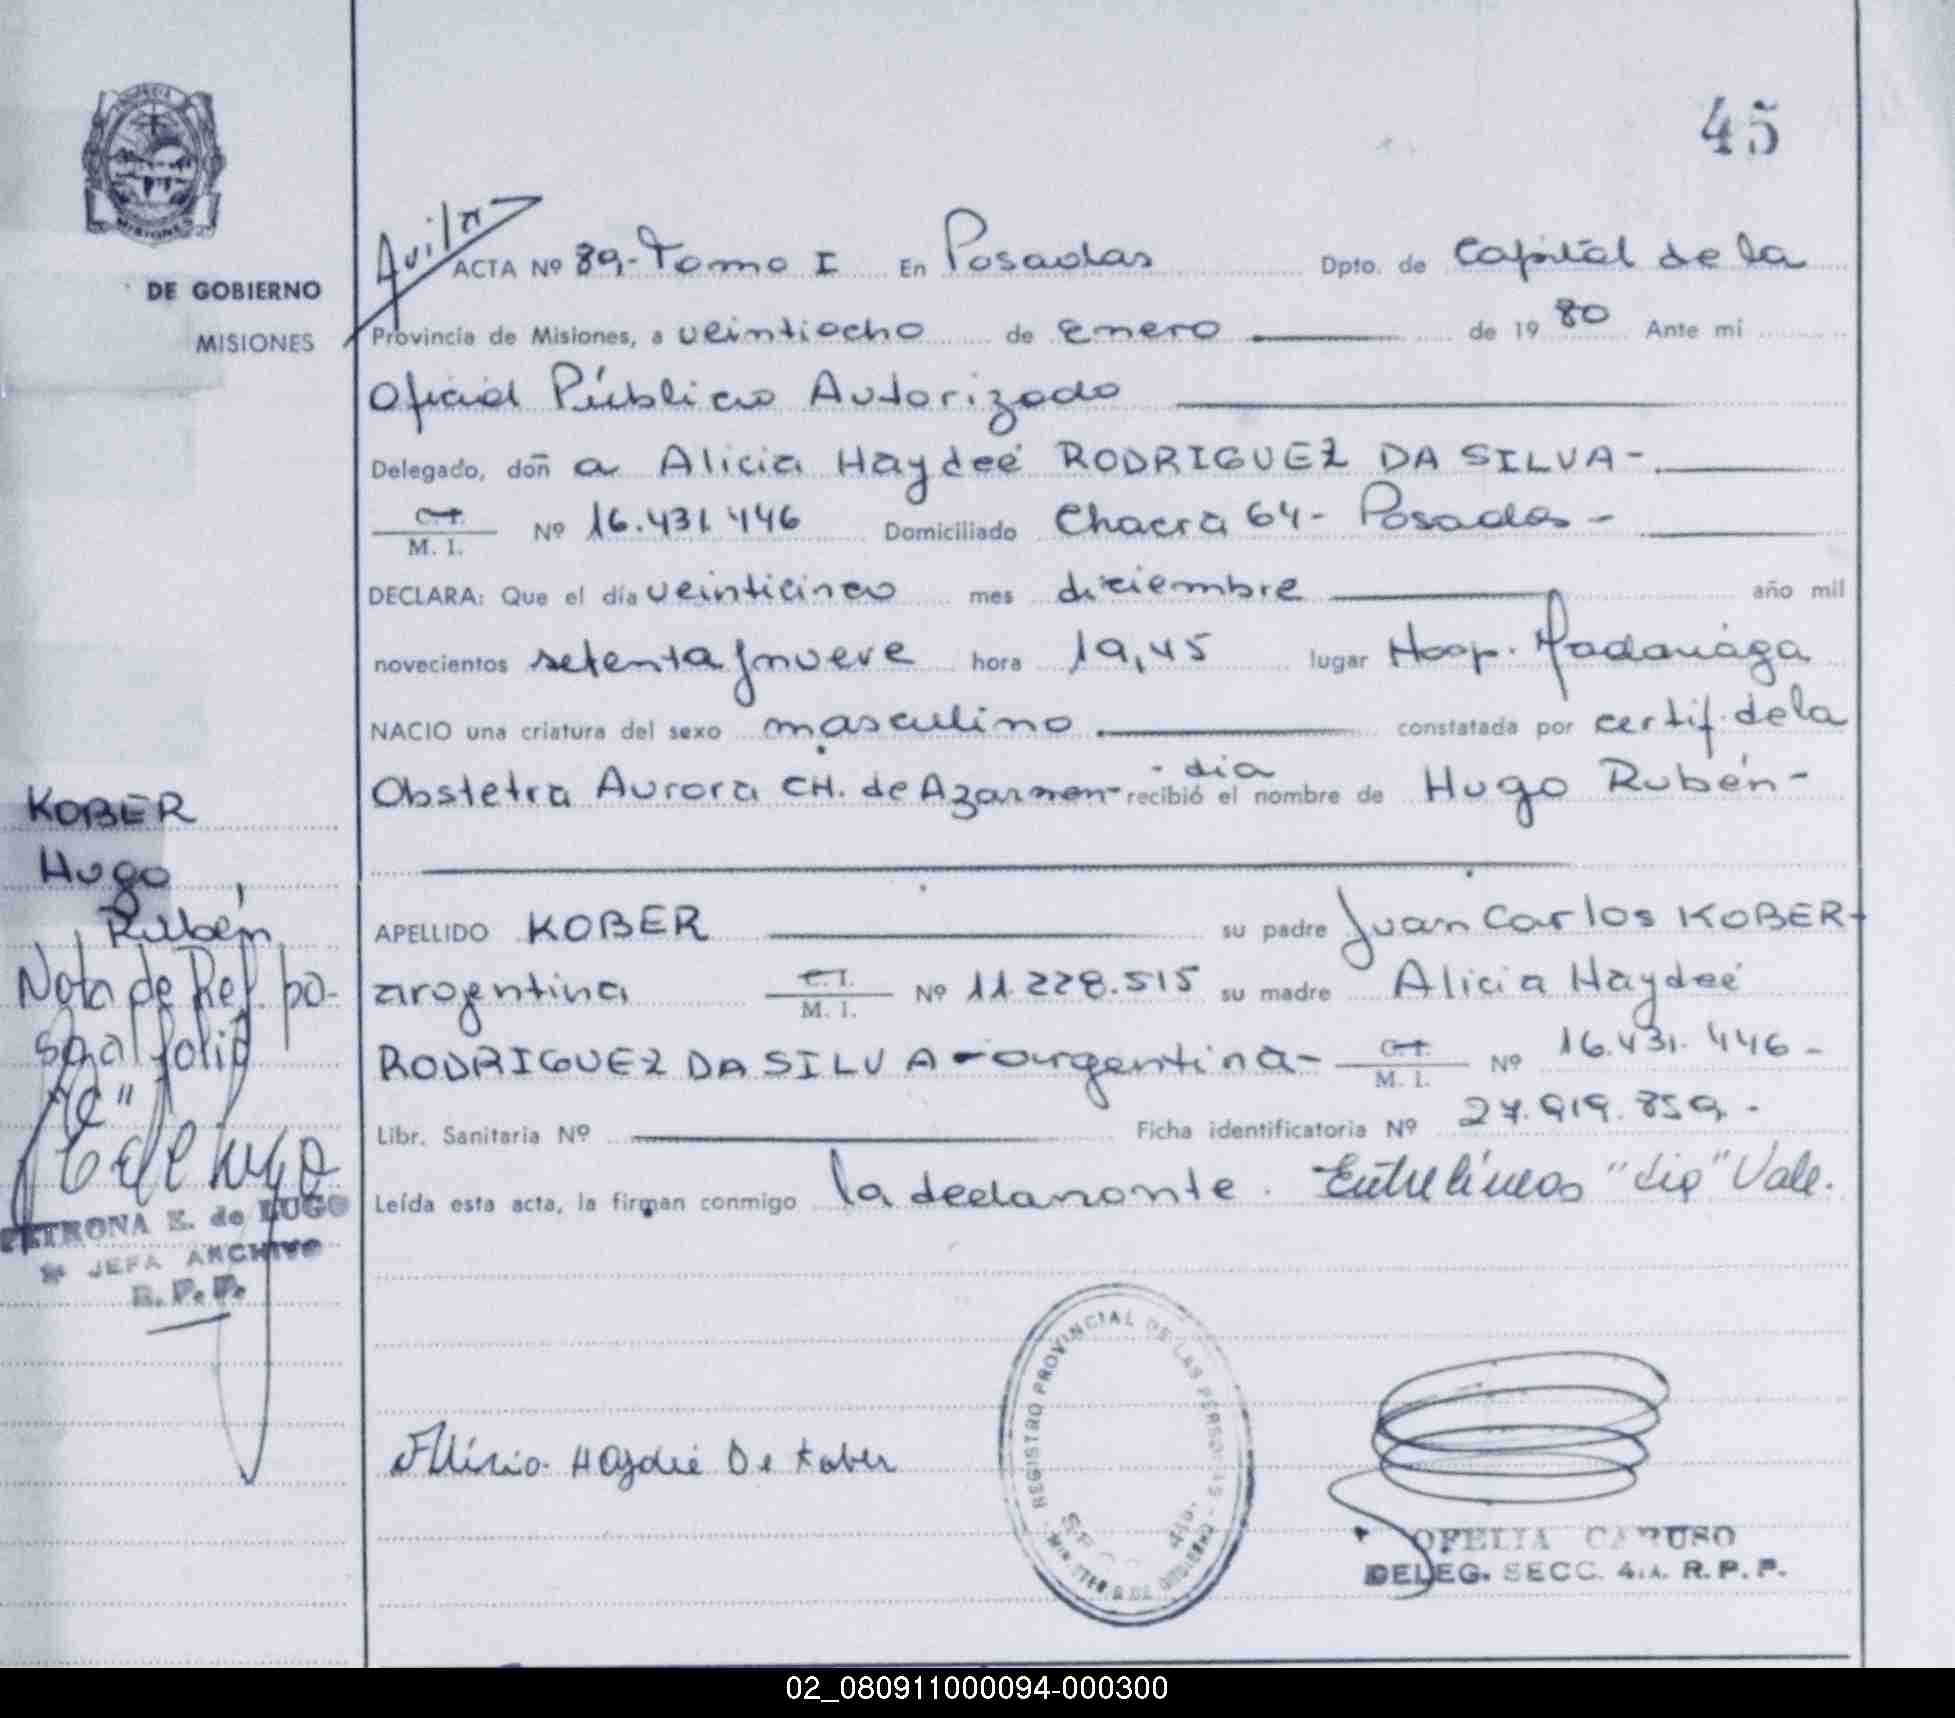 45
DE GOBIERNO
MISIONES
ACTA Nº 89,- Tomo I En Posadas Dpto. de Capital de la
Provincia de Misiones, a veintiocho de Enero de 19 80 Ante mi
Oficial Público Autorizado
Delegado, doñ a Alicia Haydeé RODRIGUEZ DA SILVA-
C. I.
M. I. Nº 16.431.446 Domiciliado Chacra 64- Posadas -
DECLARA: Que el día veinticinco mes diciembre año mil
novecientos setenta y nueve hora 19,45 lugar Hosp. Madariaga
NACIO una criatura del sexo masculino constatada por certif. de la
- dia
Obstetra Aurora CH. de recibió el nombre de Hugo Rubén-
APELLIDO KOBER su padre Juan Carlos KOBER-
argentina C. I.
M. I. Nº 11.228.515 su madre Alicia Haydeé
RODRIGUEZ DA SILVA - argentina- C. I.
M. I. Nº 16.431.446 -
Libr. Sanitaria Nº Ficha identificatoria Nº 27.919.859, -
Leída esta acta, la firman conmigo la declarante. Entrelíneas "dia" Vale.
KOBER
Hugo
Rubén
Nota de Ref. po-
sa al folio
"C"
PETRONA E. de LUGO
JEFA ARCHIVO
R. P. P.
Alicia Haydeé De Kober
REGISTRO PROVINCIAL DE LAS PERSONAS
MINISTERIO DE GOBIERNO
OFELIA CARUSO
DELEG. SECC. 4.A. R. P. P.
02_080911000094-000300